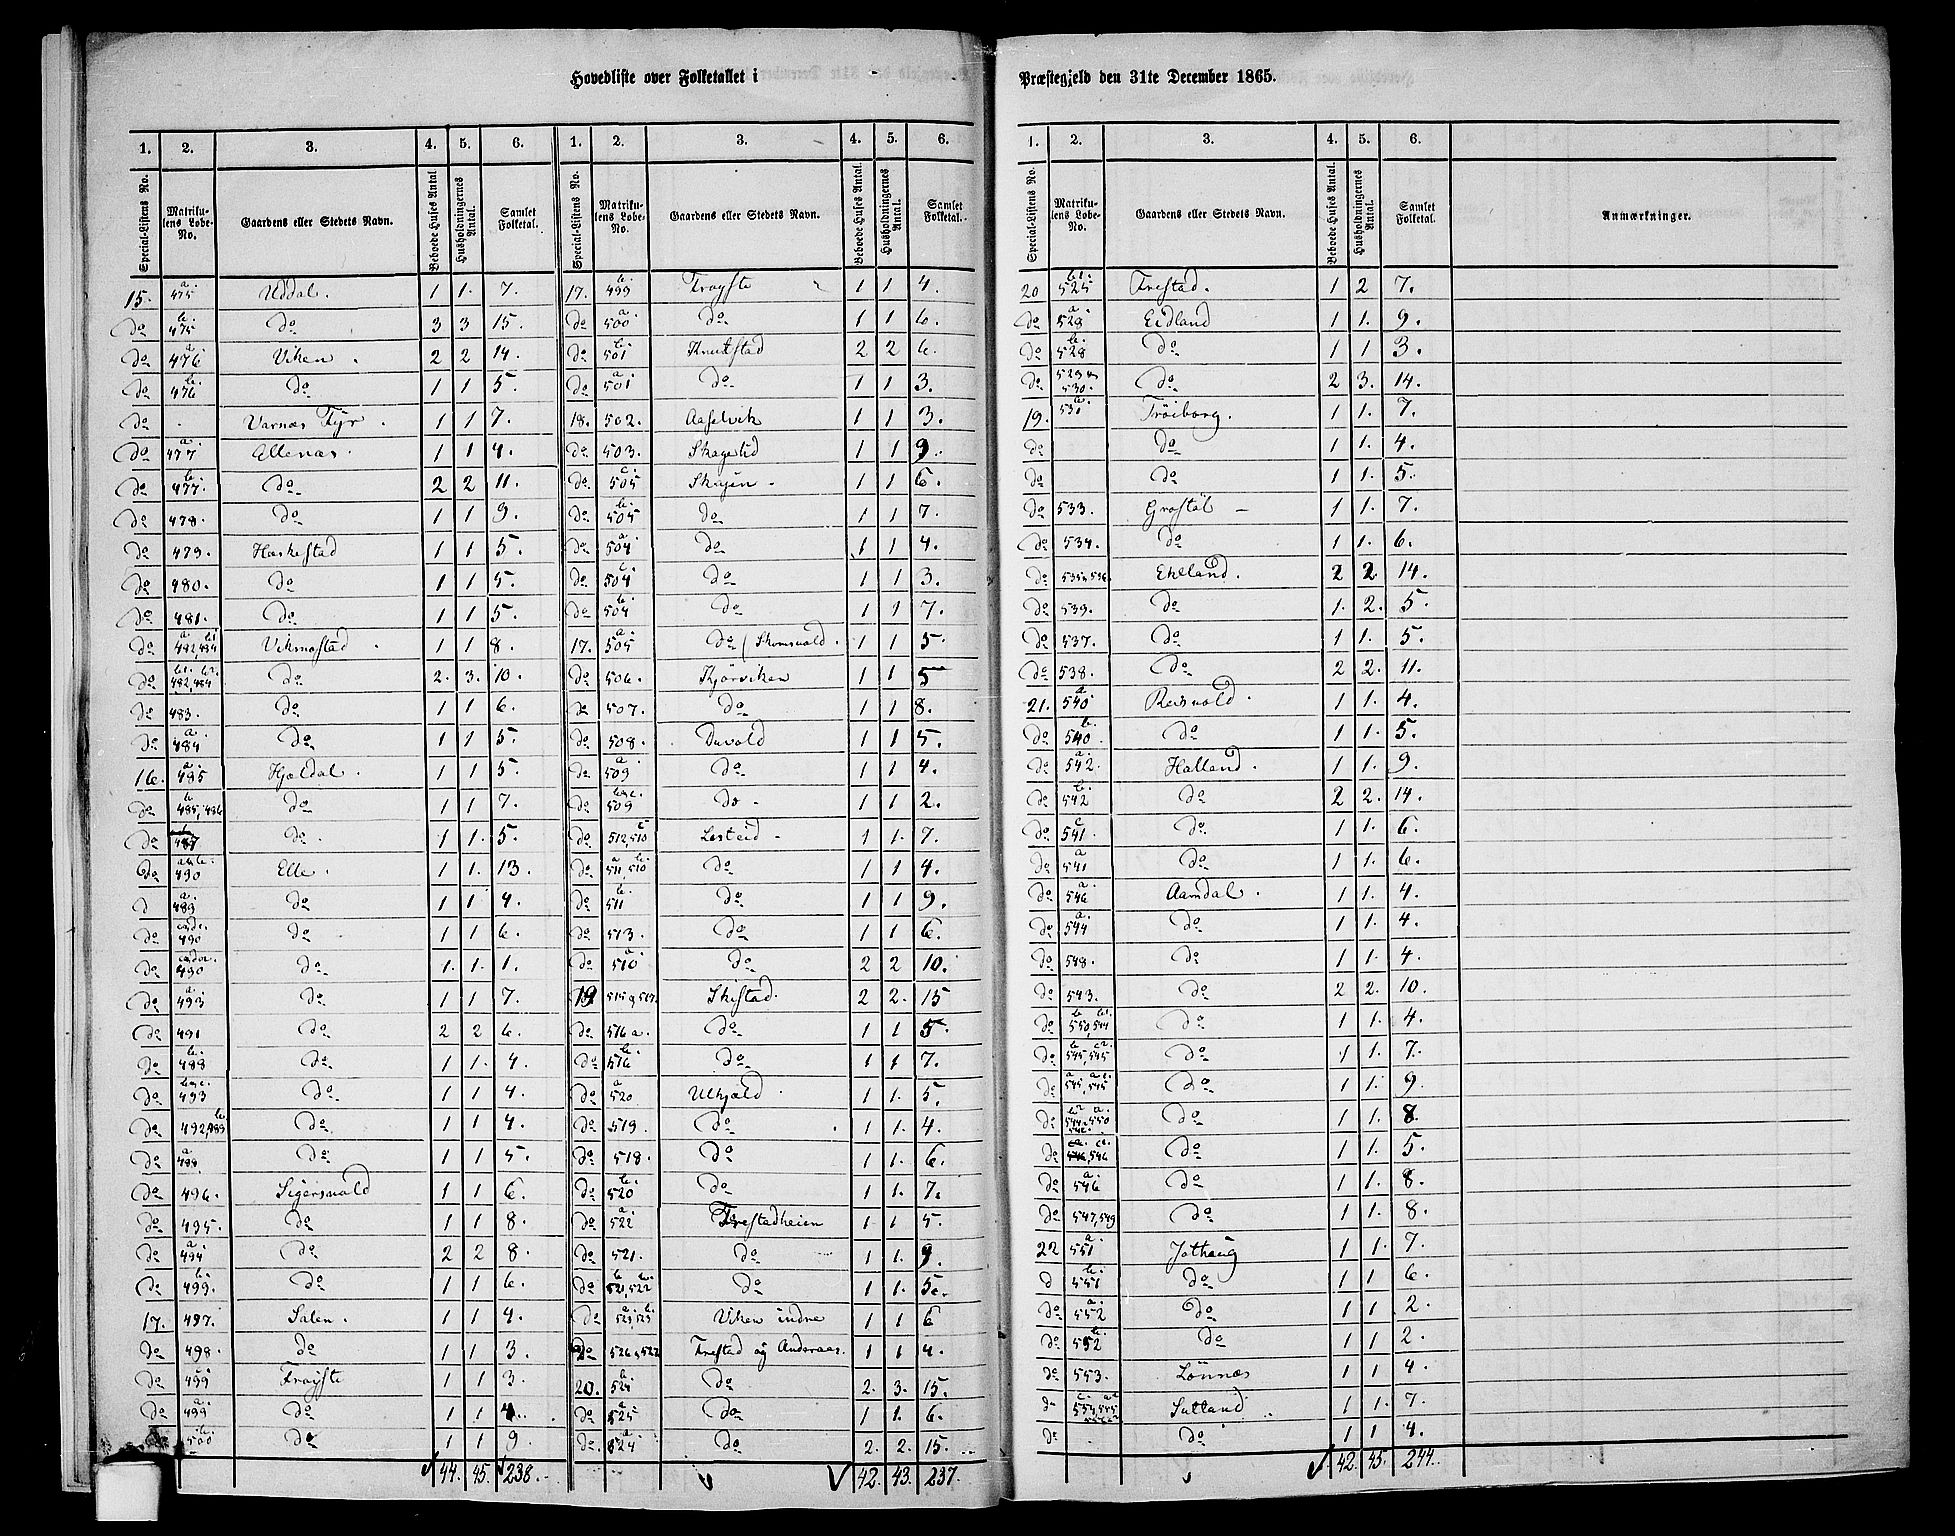 Hovedliste over Folketallet i
Præstegjeld den 31te December 1865.
1. 2. 3. 4. 5. 6. 1. 2. 3. 4. 5. 6.
Special-Listens No. Matrikulens Løbe-No. Gaardens eller Stedets Navn. Beboede Huses Antal. Husholdningernes Antal. Samlet Folketal. Special-Listens No. Matrikulens Løbe-No. Gaardens eller Stedets Navn. Beboede Huses Antal. Husholdningernes Antal. Samlet Folketal.
15. 475 a Uddal. 1 1. 7.
do 475 b do 3 3 15.
do 476 a Viken. 2 2 14.
do 476 b do 1 1 5.
do Varnæs Fyr. 1 1 7.
do 477 a Ellenæs. 1 1 4.
do 477 b do 2 2 11.
do 478. do 1 1 9.
do 479. Haskestad 1 1 5.
do 480. do 1 1 5.
do 481. do 1 1 5.
do Vikmostad 1 1 8.
do do 2. 3. 10.
do 483. do 1 1 6.
do 484 a do 1 1 5.
16. 485 a Hjældal. 1 1 5.
do 485, 486 do 1 1 7.
do 487 do. 1 1. 5.
do 490 Elle. 1 1. 13.
d 489 a do 1 1 4.
do 490 do 1 1 6.
do 490 do 1. 1. 1.
do 493 a do 1 1 7.
do 491 do 2 2 6.
do 488 b do 1 1. 4.
do 493 do 1 1 4.
do 492, 489 b do 1 1 4.
do 488 a do 1 1 5.
do 496. Sigersvold 1 1 6.
do 495. do 1 1 8.
do 494 a do 2 2 8.
do 499. do 1 1 6.
17. 497. Salen. 1 1 4.
do 498. do 1 1 3.
do 499 Frøyste 1 1 3.
do 499 a do 1 1 4.
do 500 b do 1 1 9.
44. 45. 238.
17. 499 b Frøyste 1 1 4.
do 500 a do 1 1 6.
do 501 b Knutstad 2 2 6.
do 501 a do 1 1 3.
18. 502. Aaselvik 1 1 3.
do 503. Skagelid 1 1 9.
do 505 c Skujen. 1 1 6.
do 505 b do 1 1 7.
do 504 a do 1 1 4.
do 504 c do 1 1 3.
do 504 b do 1 1 7.
17. 505 a do (Skomsvold. 1 1 5.
do 506. Kjørviken 1 1 5
do 507. do 1 1 8.
do 508. Duvold 1 1 5.
do 509 a do 1 1 4.
do 509 do. 1 1 2.
do 512, 510 c Lesteid. 1 1. 7.
do 511, 510 do 1 1 4.
do 511 b do 1 1 9.
do 513. do 1 1 6.
do 510 a do 2 2 10.
19 515 & 517. Skistad. 2 2. 15
do 516 a. do 1 1 5.
do 516 b do 1 1 7.
do 520 a Ulhjæld 1 1. 5.
do 519. do 1 1. 4.
do 518. do 1 1. 6.
do 520 b do 1 1. 7.
do 522 a Frestadheien 1 1 5.
do 521. do 1 1. 9.
do 521, 522 do 1 1. 5.
do 525, 525 Viken indre 1 1 6
do 526 & 527 Frestad og Andersaas. 1 1 4.
20. 525 do 2. 3. 15.
do 525 a do 1 1. 6.
do. 524 a do 2. 2. 15.
42. 43. 237.
1. 2. 3. 4. 5. 6.
Special-Listens No. Matrikulens Løbe-No. Gaardens eller Stedets Navn. Beboede Huses Antal. Husholdningernes Antal. Samlet Folketal. Anmærkninger.
20 525 b1. Frestad. 1 2 7.
do 528 a Eidland 1 1. 9.
do 528 b do 1 1 3.
do 529 & 530. do 2 3. 14.
19. 531 b Trøiborg. 1 1. 7.
do do 1 1. 4.
do do 1 1. 5.
do 533. Grøstøl 1 1. 7.
do 534. do 1 1. 6.
do 535 & 536. Ekeland. 2 2 14.
do 539. do 1. 2. 5.
do 537. do 1 1. 5.
do 538. do 2 2. 11.
21. 540 a Reisvold. 1 1. 4.
do 540 b. do 1 1. 5.
do 542. a Halland. 1 1. 9.
do 542 b do 2 2. 14.
do 541. c do 1 1. 6.
do 541 a do 1 1. 6.
do 546 a Aamdal. 1 1. 4.
do 544 a. do 1 1. 4.
do 548. do 1 1. 4.
do 543. do 2 2. 10.
do 550, 544 do 1 1. 4.
do 545, 545 do 1 1. 7.
do 545, 545 do 1 1. 9.
do do 1 1. 8.
do do 1 1. 5.
do 546 a do 1 1. 8.
do 547, 549 do 1 1. 8.
22 551 a Jøthaug 1 1. 7.
d 551 b do 1 1 6.
do 552 a do 1 1 2.
do 552 b do 1 1 2.
do. 553. Lønnæs 1 1 4.
do Sutland 1 1. 7.
do do 1 1 4.
42. 45. 244.